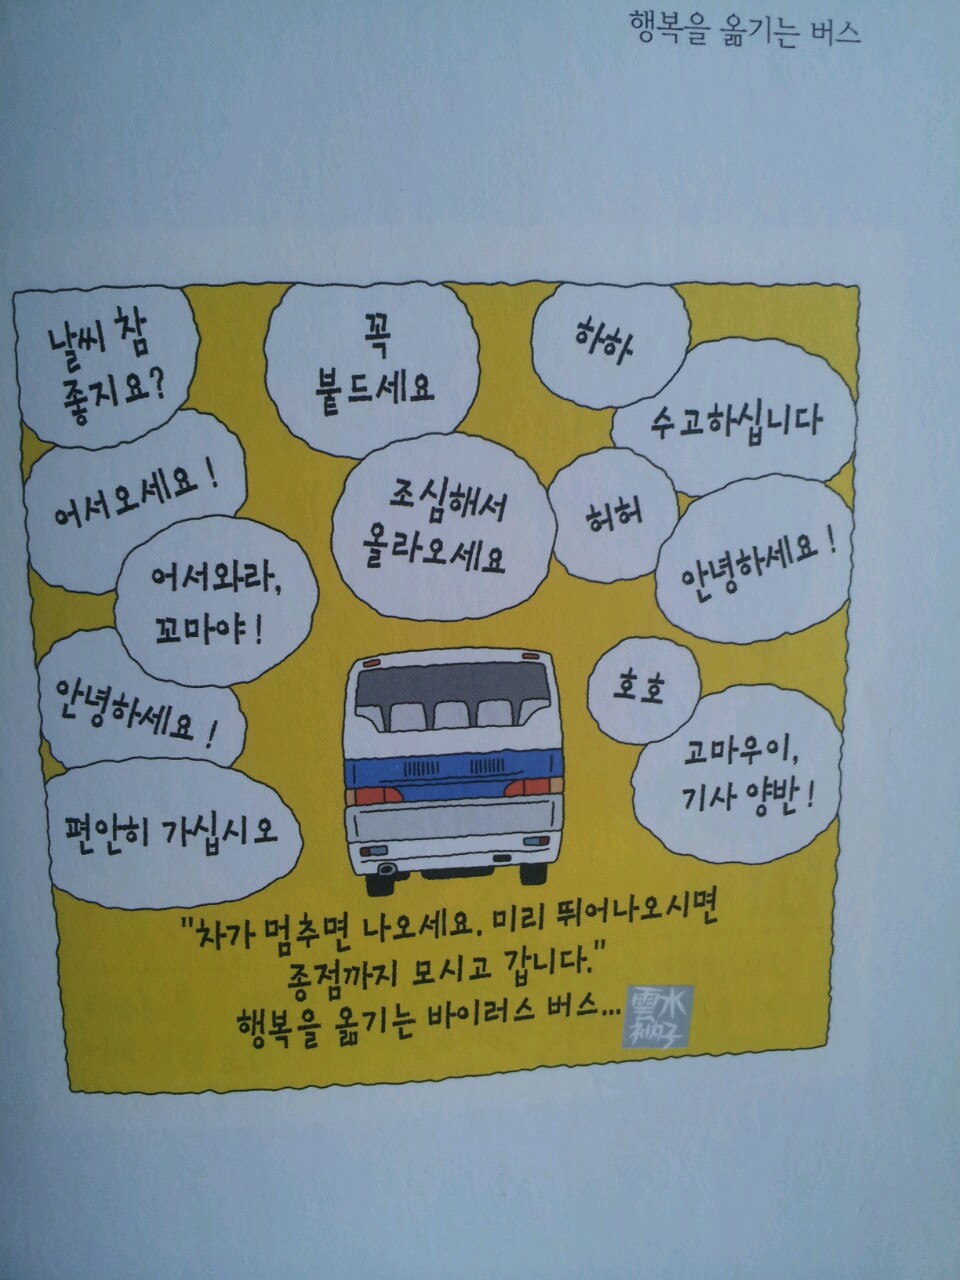 행복을 옮기는 버스
날씨 참
좋지요?
꼭
붙드세요
하하
수고하십니다
어서오세요!
조심해서
올라오세요
허허
안녕하세요!
어서와라,
꼬마야!
안녕하세요!
호호
고마우이,
기사 양반!
편안히 가십시오
"차가 멈추면 나오세요. 미리 뛰어나오시면
종점까지 모시고 갑니다."
행복을 옮기는 바이러스 버스...
雲水
衲子